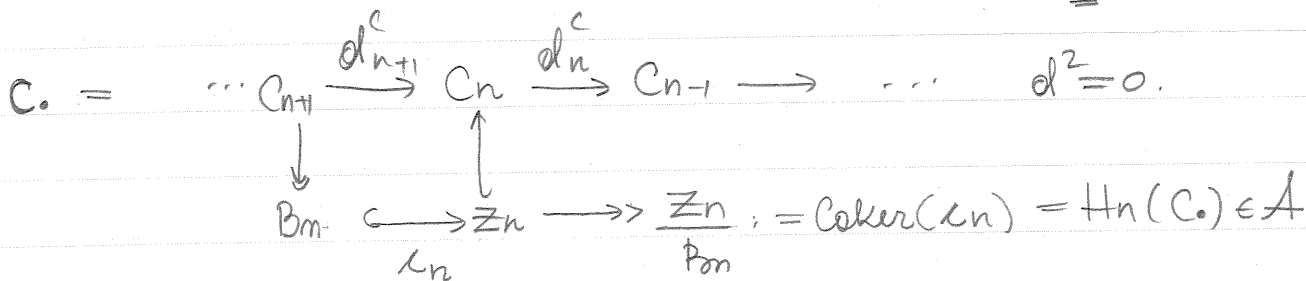 C. = ⋯ C_{n+1} \xrightarrow{d^c_{n+1}} C_n \xrightarrow{d^c_n} C_{n-1} ⟶ ⋯ d² = 0.
↓ ↑
B_n \xhookrightarrow{ι_n} Z_n ↠ \frac{Z_n}{B_n} := Coker(ι_n) = H_n(C.) ∈ A